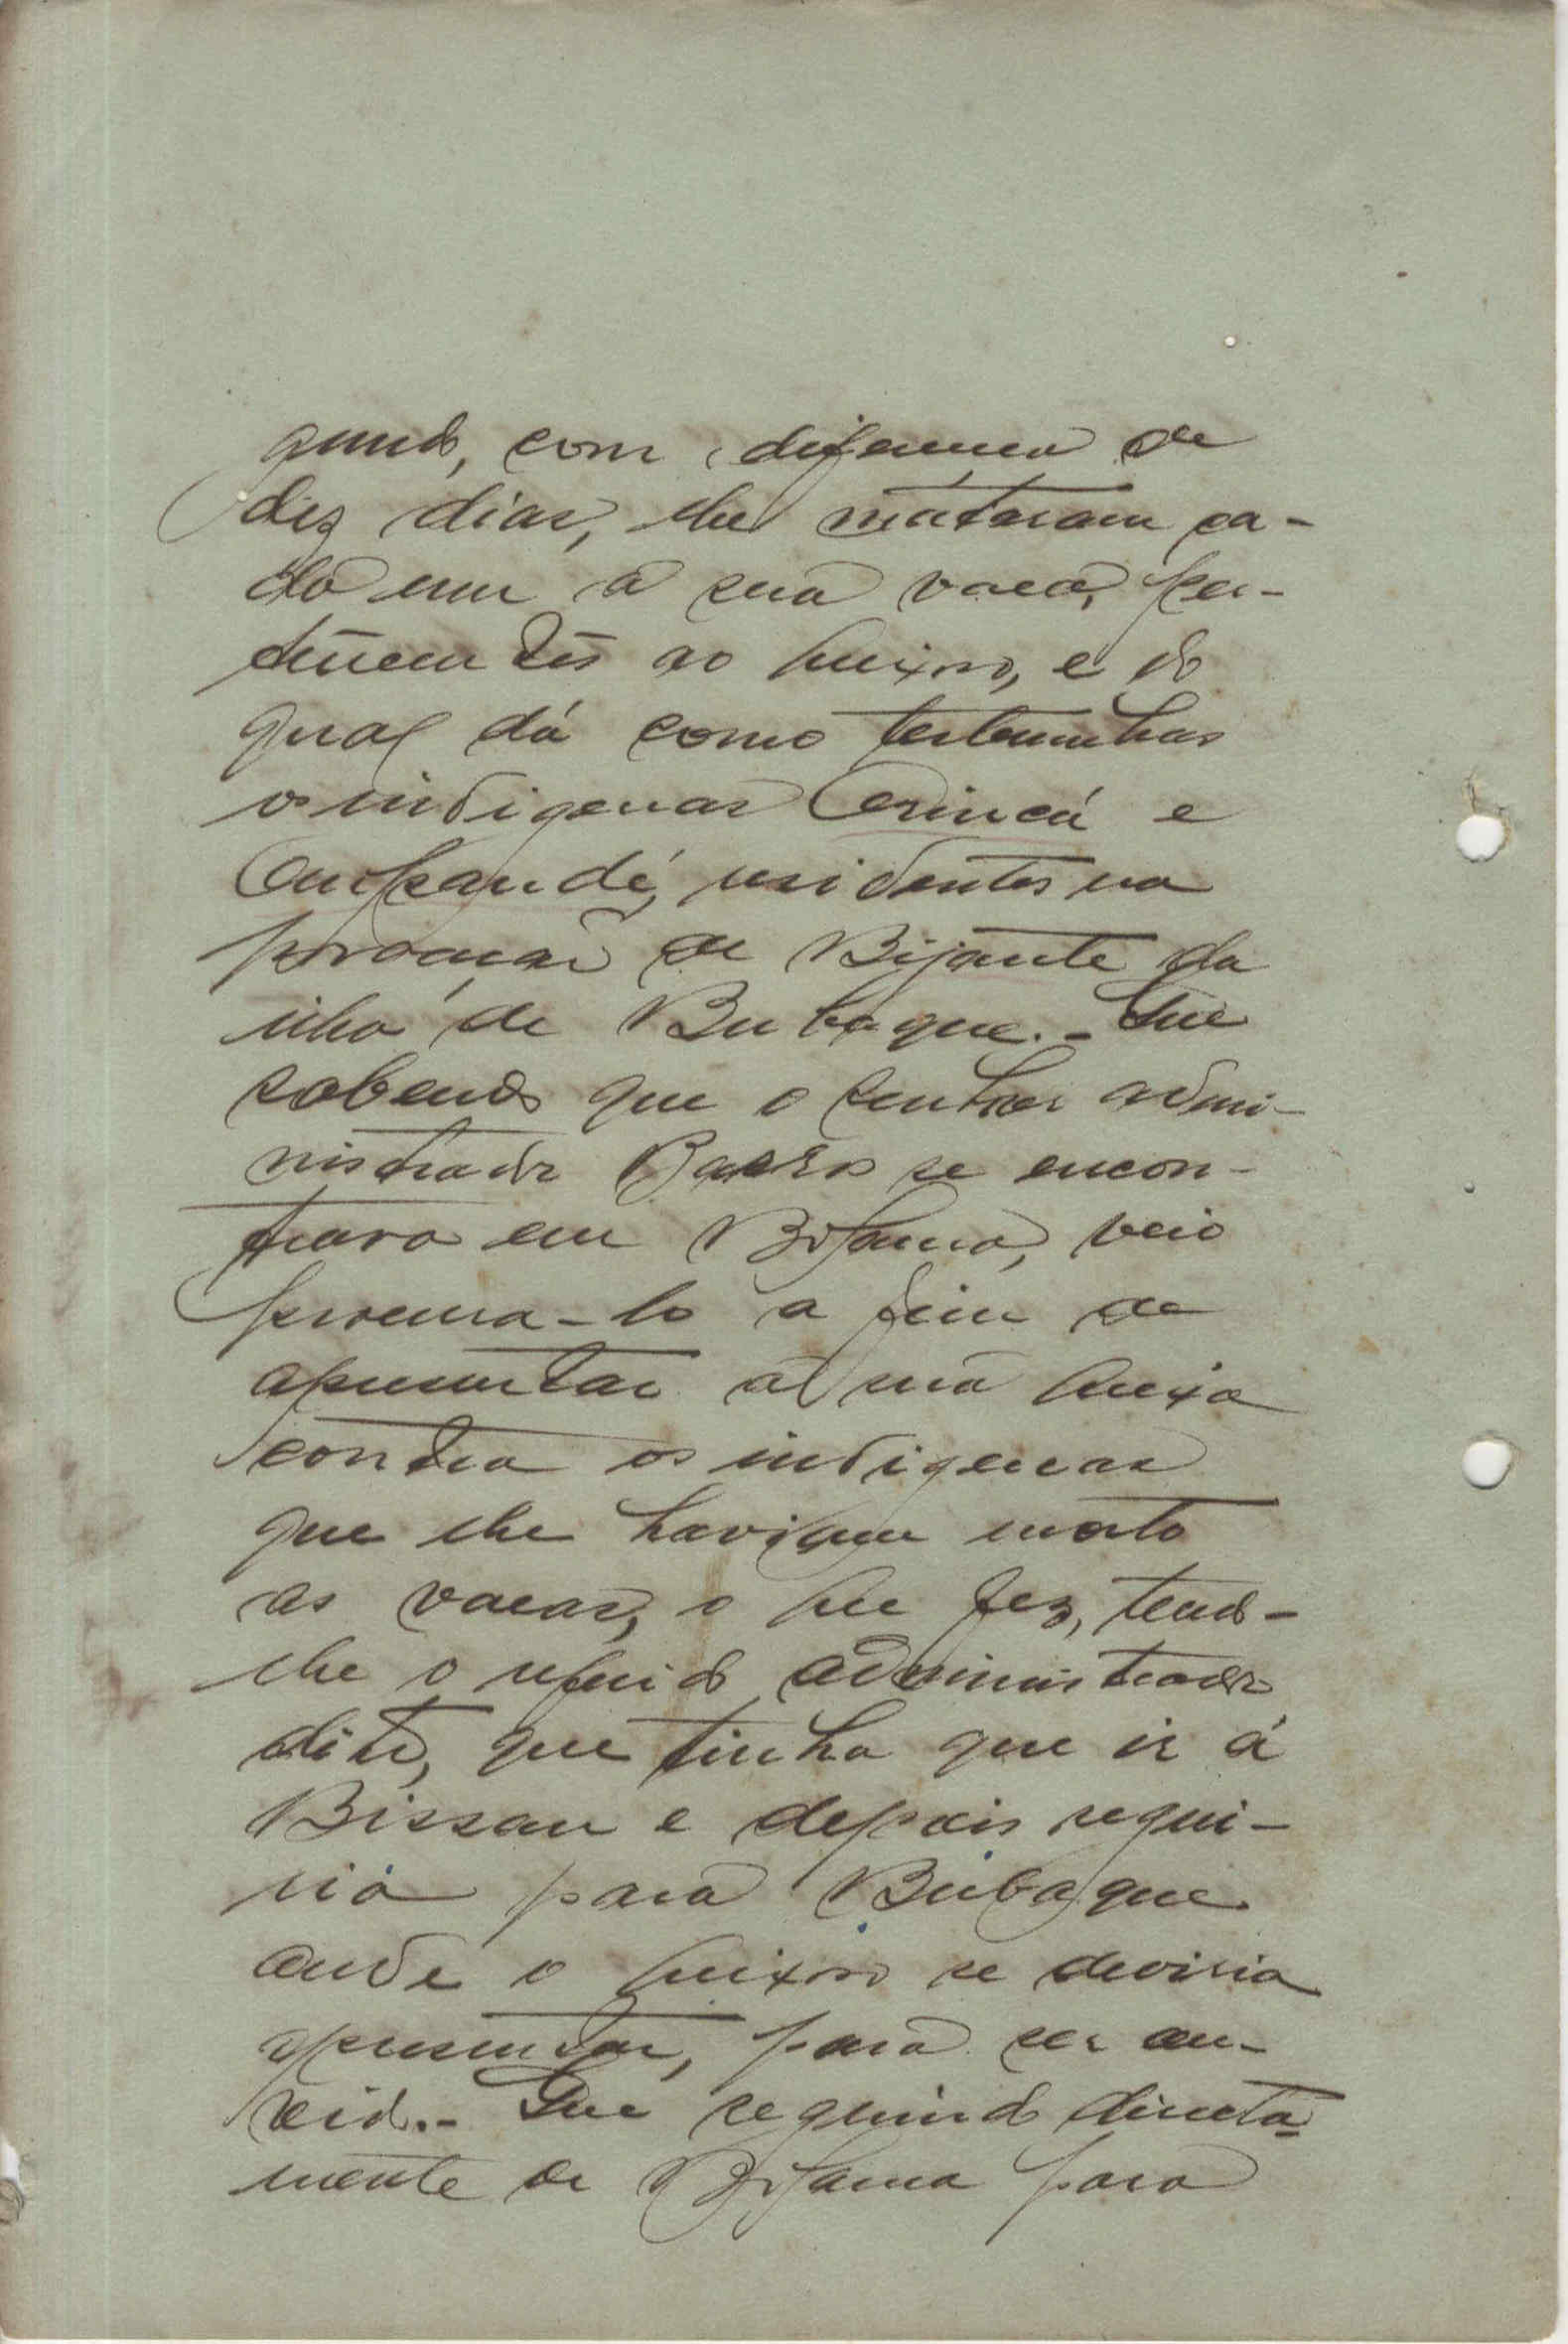 gundo, com diferença de
dez dias, lhe mataram ca-
da um a sua vaca, per-
tencentes ao queixoso, e do
qual dá como testemunhas
os indigenas Orincá e
Oncpandé, residentes na
povoação de Bijante da
ilha de Bubaque.- Que
sabendo que o senhor admi-
nistrador Barros se encon-
trava em Bolama, veio
procura-lo a fim de
apresentar a sua queixa
contra os indigenas
que lhe haviam morto
as vacas, o que fez, tendo-
lhe o referido administrador
dito, que tinha que ir á
Bissau e depois segui-
ria para Bubaque
onde o queixoso se deviria
apresentar, para ser ou-
vido.- Que seguindo directa-
mente de Bolama para